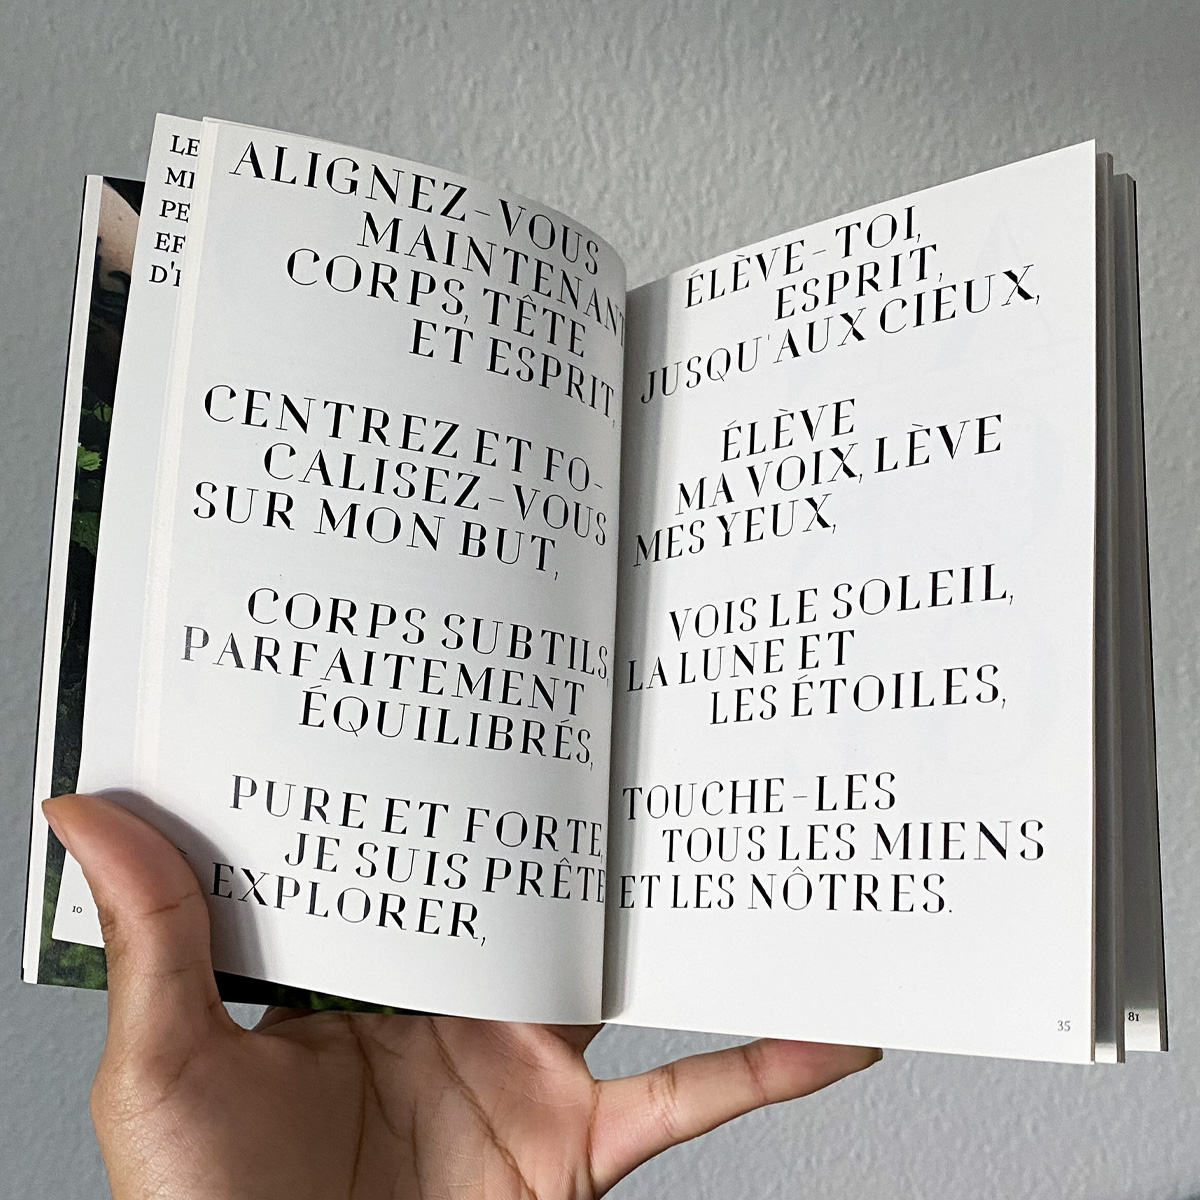 LE
ALIGNEZ-VOUS
MAINTENANT
CORPS, TÊTE
ET ESPRIT,
CENTREZ ET FO-
CALISEZ-VOUS
SUR MON BUT,
CORPS SUBTILS,
PARFAITEMENT
ÉQUILIBRÉS,
PURE ET FORTE,
JE SUIS PRÊTE
EXPLORER,
10
ÉLÈVE-TOI,
ESPRIT,
JUSQU'AUX CIEUX,
ÉLÈVE
MA VOIX, LÈVE
MES YEUX,
VOIS LE SOLEIL,
LA LUNE ET
LES ÉTOILES,
TOUCHE-LES
TOUS LES MIENS
ET LES NÔTRES.
35
81